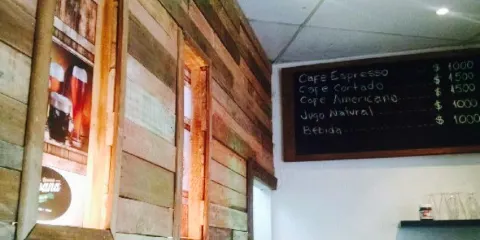 Cafe Espresso $ 1000
Cafe Cortado $ 1500
Cafe Americano $ 1500
Jugo Natural $ 1000
Bebida $ 1.000